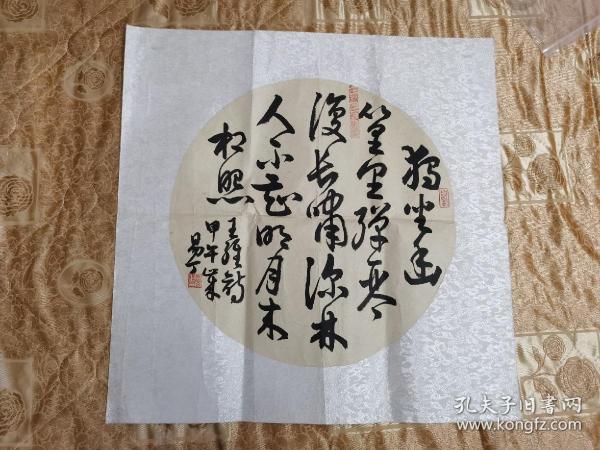 独坐幽
篁里弹琴
复长啸深林
人不知明月来
相照
王维诗
甲午年
孔夫子旧书网
www.kongfz.com